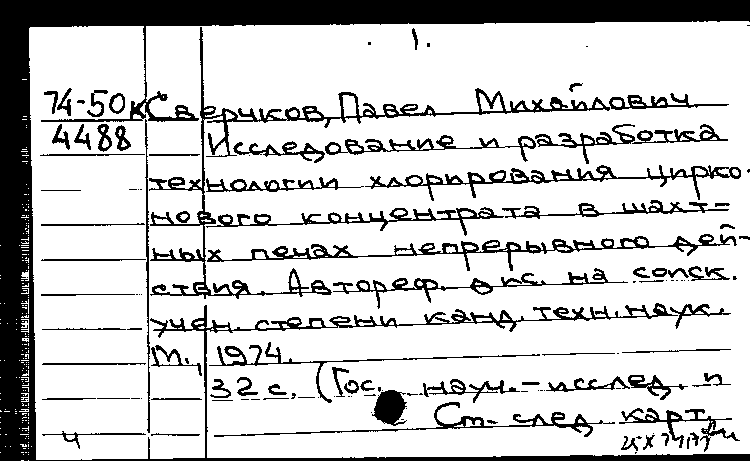 1.
74-50к Сверчков, Павел Михайлович
4488 Исследование и разработка
технологии хлорирования цирко-
нового концентрата в шахт-
ных печах непрерывного дей-
ствия. Автореф. дис. на соиск.
учен. степени канд. техн. наук.
М., 1974.
32 с. (Гос. науч.-исслед. и
См. след. карт.
ч